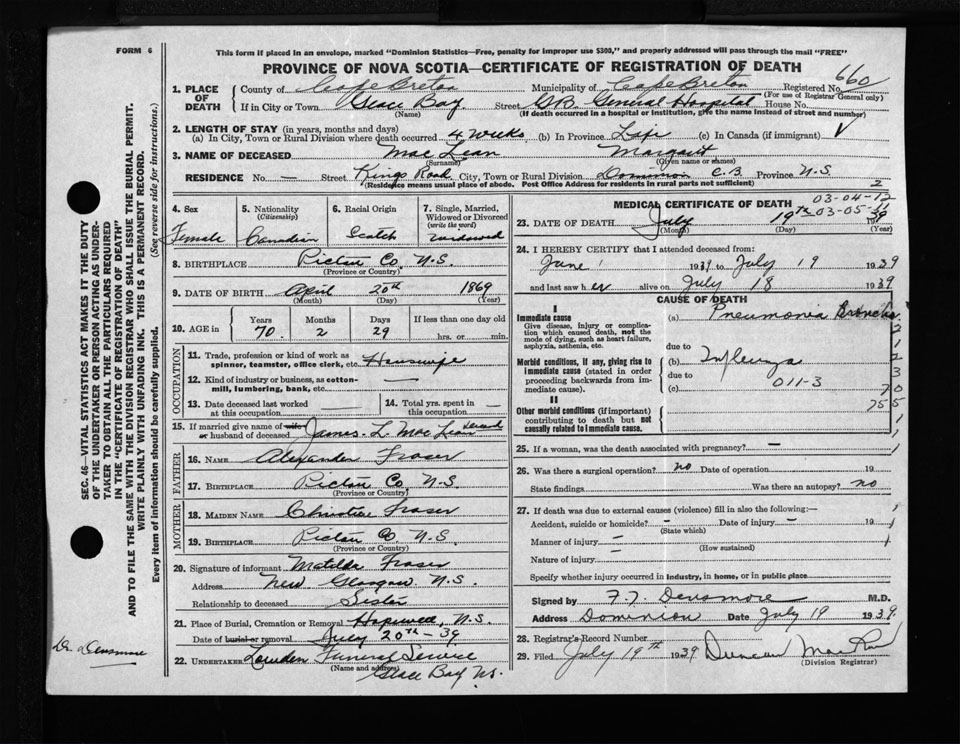 FORM 6
This form if placed in an envelope, marked "Dominion Statistics—Free, penalty for improper use $300," and properly addressed will pass through the mail "FREE"
PROVINCE OF NOVA SCOTIA—CERTIFICATE OF REGISTRATION OF DEATH
660
1. PLACE OF DEATH County of Cape Breton Municipality of Cape Breton Registered No.
(For use of Registrar General only)
If in City or Town Glace Bay Street G.B. General Hospital House No.
(Name) (If death occurred in a hospital or institution, give the name instead of street and number)
2. LENGTH OF STAY (in years, months and days)
(a) In City, Town or Rural Division where death occurred 4 weeks (b) In Province Life (c) In Canada (if immigrant)
3. NAME OF DECEASED MacLean Margaret
(Surname) (Given name or names)
RESIDENCE No. — Street Kings Road City, Town or Rural Division Dominion C.B. Province N.S.
(Residence means usual place of abode. Post Office Address for residents in rural parts not sufficient) 2
4. Sex
Female
5. Nationality
(Citizenship)
Canadian
6. Racial Origin
Scotch
7. Single, Married, Widowed or Divorced
(write the word)
widowed
8. BIRTHPLACE Pictou Co. N.S.
(Province or Country)
9. DATE OF BIRTH April 20th 1869
(Month) (Day) (Year)
10. AGE in Years Months Days If less than one day old
70 2 29 hrs. or min.
OCCUPATION
11. Trade, profession or kind of work as spinner, teamster, office clerk, etc. Housewife
12. Kind of industry or business, as cotton-mill, lumbering, bank, etc. —
13. Date deceased last worked at this occupation —
14. Total yrs. spent in this occupation —
15. If married give name of wife or husband of deceased James L. MacLean
FATHER
16. NAME Alexander Fraser
17. BIRTHPLACE Pictou Co. N.S.
(Province or Country)
MOTHER
18. MAIDEN NAME Christie Fraser
19. BIRTHPLACE Pictou Co N.S.
(Province or Country)
20. Signature of informant Matilda Fraser
Address New Glasgow N.S.
Relationship to deceased Sister
21. Place of Burial, Cremation or Removal Hopewell, N.S.
Date of burial or removal July 20th - 39
22. UNDERTAKER Lowden Funeral Service
(Name and address)
Glace Bay N.S.
MEDICAL CERTIFICATE OF DEATH
03-04-12
03-05-11
23. DATE OF DEATH July 19th 39
(Month) (Day) (Year)
24. I HEREBY CERTIFY that I attended deceased from:
June 1 1939 to July 19 1939
and last saw her alive on July 18 1939
CAUSE OF DEATH
I
Immediate cause
Give disease, injury or complication which caused death, not the mode of dying, such as heart failure, asphyxia, asthenia, etc.
(a) Pneumonia Broncho
due to
Morbid conditions, if any, giving rise to immediate cause (stated in order proceeding backwards from immediate cause).
(b) Influenza
due to
(c) 011-3
II
Other morbid conditions (if important) contributing to death but not causally related to immediate cause.
25. If a woman, was the death associated with pregnancy? —
26. Was there a surgical operation? no Date of operation 19
State findings Was there an autopsy? no
27. If death was due to external causes (violence) fill in also the following:—
Accident, suicide or homicide? — Date of injury — 19
(State which)
Manner of injury —
(How sustained)
Nature of injury —
Specify whether injury occurred in industry, in home, or in public place
Signed by F. J. Densmore M.D.
Address Dominion Date July 19 1939
28. Registrar's Record Number
29. Filed July 19th 1939 Duncan
(Division Registrar)
SEC. 46—VITAL STATISTICS ACT MAKES IT THE DUTY
OF THE UNDERTAKER OR PERSON ACTING AS UNDER-
TAKER TO OBTAIN ALL THE PARTICULARS REQUIRED
IN THE "CERTIFICATE OF REGISTRATION OF DEATH"
AND TO FILE THE SAME WITH THE DIVISION REGISTRAR WHO SHALL ISSUE THE BURIAL PERMIT.
WRITE PLAINLY WITH UNFADING INK. THIS IS A PERMANENT RECORD.
Every item of information should be carefully supplied. (See reverse side for instructions.)
Dr. Densmore